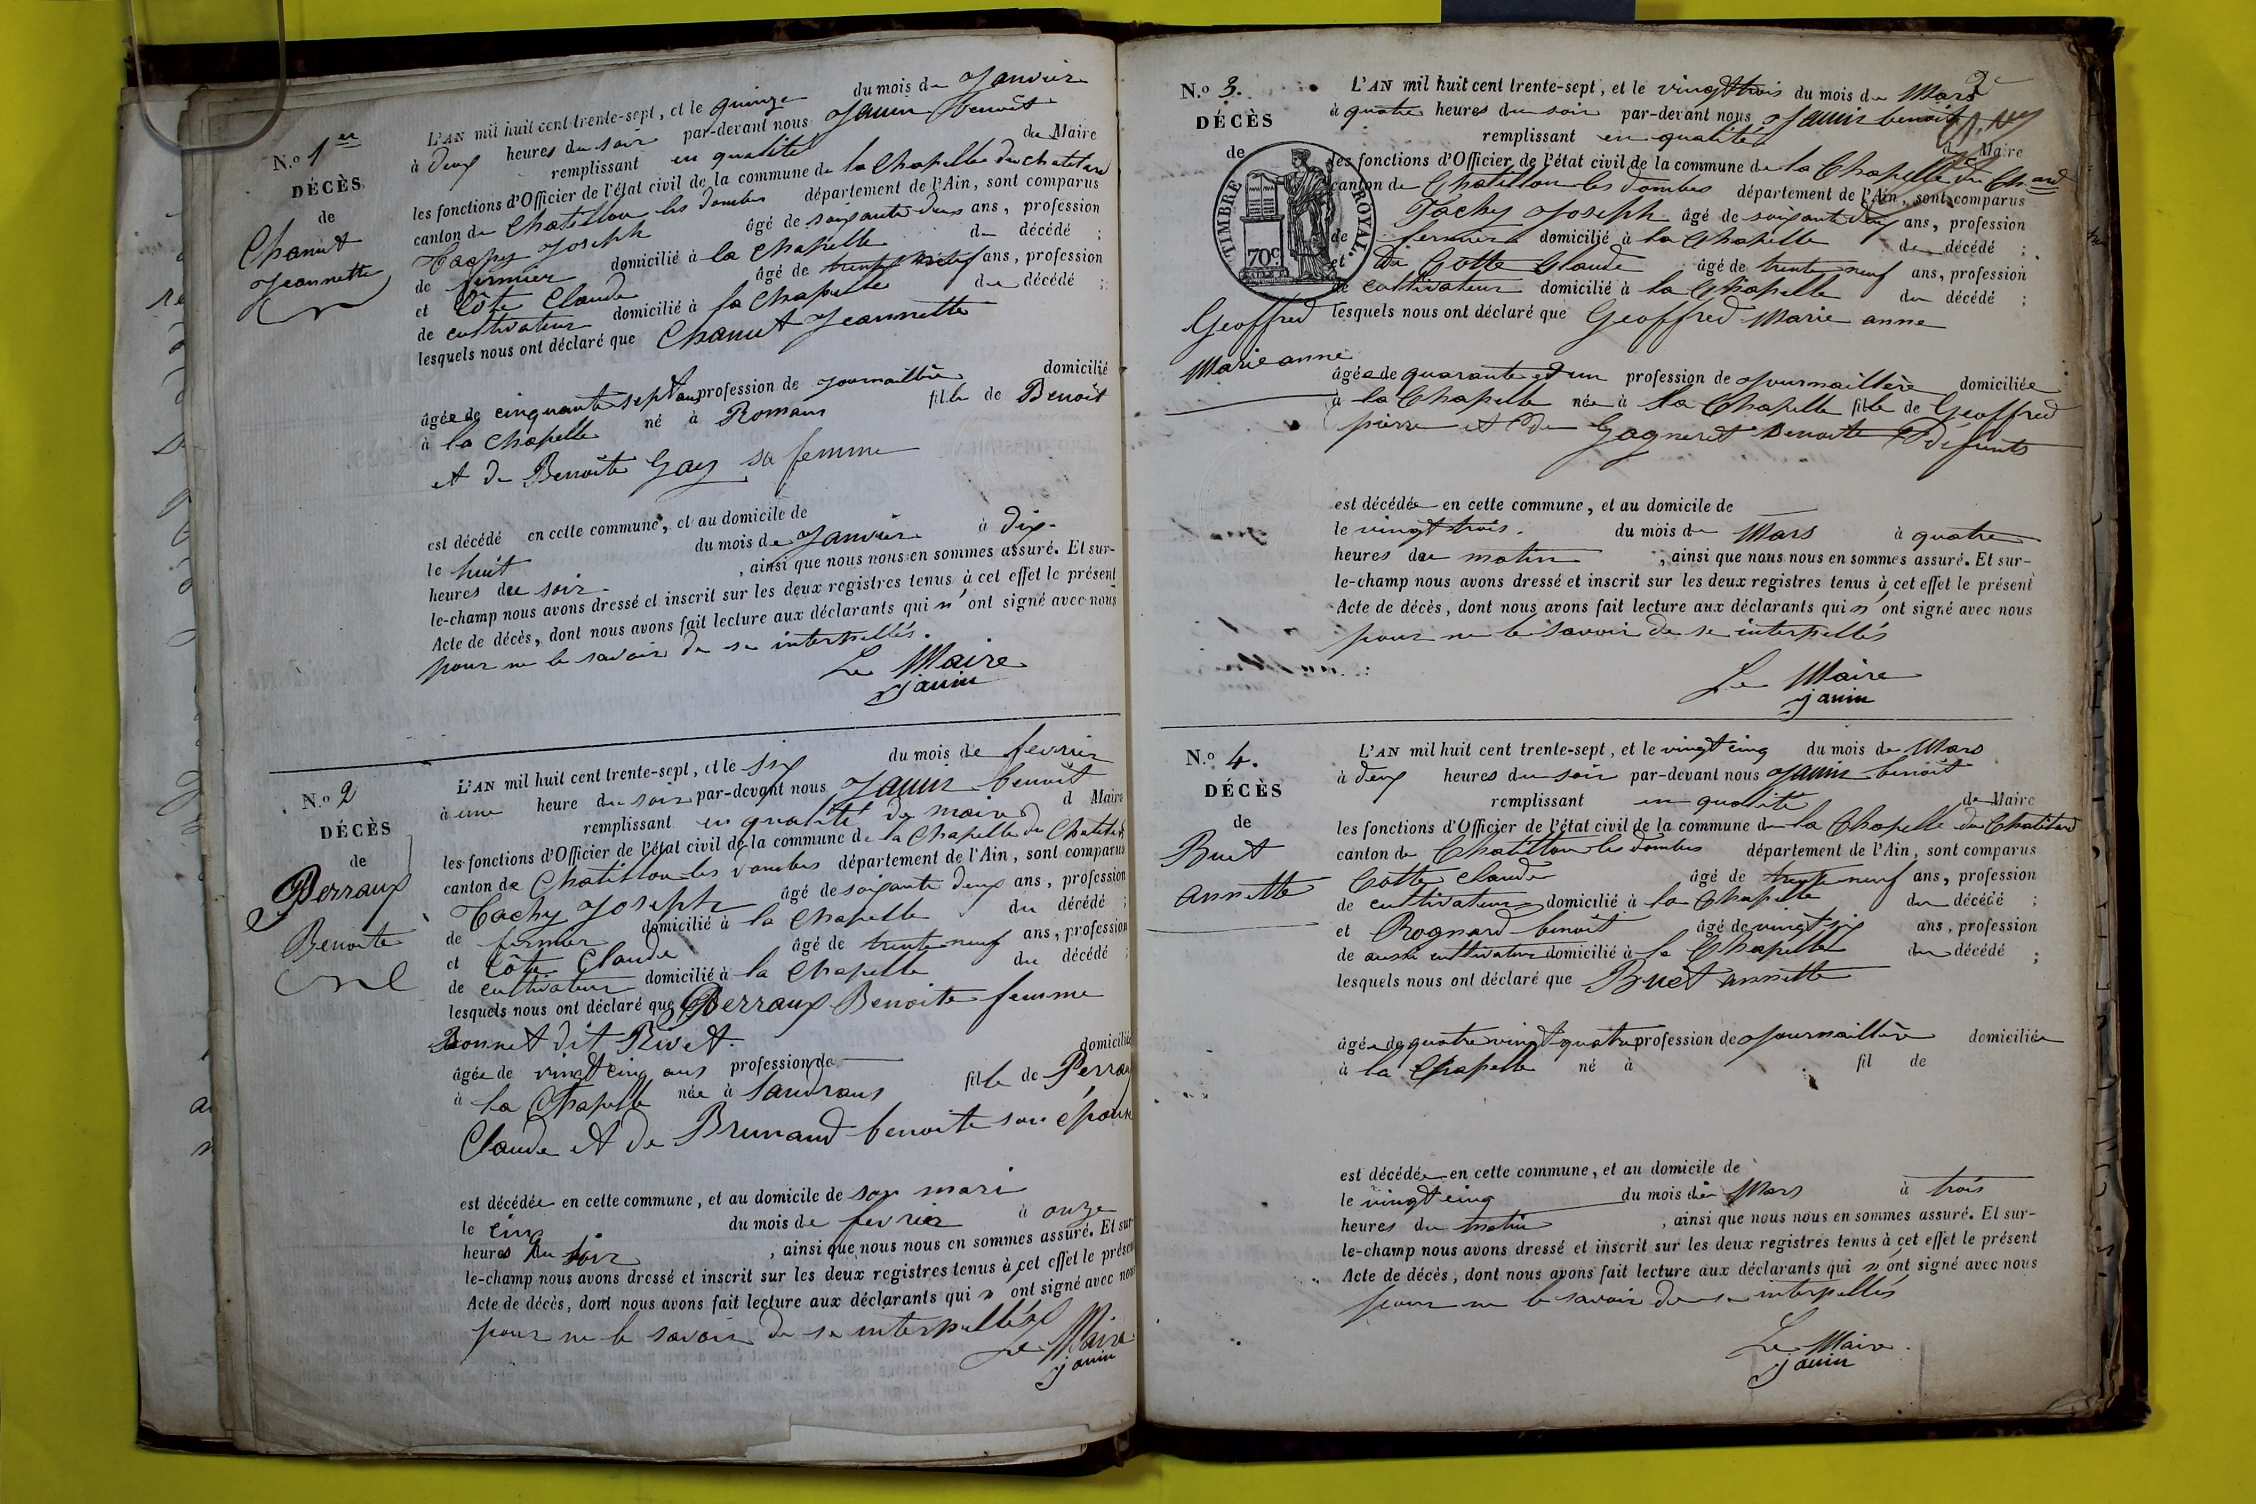 N.o 1er
DÉCÈS
de
Chanut
Jeannette
L'AN mil huit cent trente-sept, et le quinze du mois de Janvier
à deux heures du soir par-devant nous Janin benoît
remplissant en qualité de Maire
les fonctions d'Officier de l'état civil de la commune de la Chapelle du chatelard
canton de Chatillon les dombes département de l'Ain, sont comparus
Tachy Joseph âgé de soixante deux ans, profession
de fermier domicilié à la Chapelle du décédé ;
et Côte Claude âgé de trente neuf ans, profession
de cultivateur domicilié à la Chapelle du décédé ;
lesquels nous ont déclaré que Chanut Jeannette
âgée de cinquante sept ans profession de Journaillère domicilié
à la Chapelle né à Romans fille de Benoit
et de Benoîte Gay sa femme
est décédé en cette commune, et au domicile de
le huit du mois de Janvier à dix
heures du soir , ainsi que nous nous en sommes assuré. Et sur-
le-champ nous avons dressé et inscrit sur les deux registres tenus à cet effet le présent
Acte de décès, dont nous avons fait lecture aux déclarants qui n'ont signé avec nous
pour ne le savoir de se interpellés.
Le Maire
janin
N.o 2
DÉCÈS
de
Perraux
Benoite
L'AN mil huit cent trente-sept, et le six du mois de fevrier
à une heure du soir par-devant nous Janin benoît
remplissant en qualité de maire d Maire
les fonctions d'Officier de l'état civil de la commune de la Chapelle du Chatelard
canton de Chatillon les dombes département de l'Ain, sont comparus
Tachy Joseph âgé de soixante deux ans, profession
de fermier domicilié à la Chapelle du décédé ;
et Côte Claude âgé de trente neuf ans, profession
de cultivateur domicilié à la Chapelle du décédé ;
lesquels nous ont déclaré que Perraux Benoite femme
Bonnet dit Rivet.
âgée de vingt cinq ans profession de domiciliée
à la Chapelle née à Sandrans fille de Perraux
Claude et de Brunaud benoite son épouse
est décédée en cette commune, et au domicile de son mari
le cinq du mois de fevrier à onze
heures du soir , ainsi que nous nous en sommes assuré. Et sur-
le-champ nous avons dressé et inscrit sur les deux registres tenus à cet effet le présent
Acte de décès, dont nous avons fait lecture aux déclarants qui n ont signé avec nous
pour ne le savoir de se interpellés
Le Maire
janin
2
N.o 3.
DÉCÈS
de
TIMBRE ROYAL.
70c
Geoffred
Marie anne
L'AN mil huit cent trente-sept, et le vingt trois du mois de Mars
à quatre heures du soir par-devant nous Janin benoit
remplissant en qualité de Maire
les fonctions d'Officier de l'état civil de la commune de la Chapelle du Chard
canton de Chatillon les dombes département de l'Ain, sont comparus
Tachy Joseph âgé de soixante deux ans, profession
de fermier domicilié à la Chapelle du décédé ;
et de Cotte Claude âgé de trente neuf ans, profession
de cultivateur domicilié à la Chapelle du décédé ;
lesquels nous ont déclaré que Geoffred Marie anne
âgée de quarante et un profession de Journaillère domiciliée
à la Chapelle née à la Chapelle fille de Geoffred
pierre et de Gagneret Benoite défunts
est décédée en cette commune, et au domicile de
le vingt trois. du mois de Mars à quatre
heures du matin , ainsi que nous nous en sommes assuré. Et sur-
le-champ nous avons dressé et inscrit sur les deux registres tenus à cet effet le présent
Acte de décès, dont nous avons fait lecture aux déclarants qui n'ont signé avec nous
pour ne le savoir de se interpellés
Le Maire
janin
N.o 4.
DÉCÈS
de
Buet
annette
L'AN mil huit cent trente-sept, et le vingt cinq du mois de Mars
à deux heures du soir par-devant nous Janin benoit
remplissant en qualité de Maire
les fonctions d'Officier de l'état civil de la commune de la Chapelle du Chatelard
canton de Chatillon les dombes département de l'Ain, sont comparus
Cotte Claude âgé de trente neuf ans, profession
de cultivateur domicilié à la Chapelle du décédé ;
et Rognard benoit âgé de vingt six ans, profession
de aussi cultivateur domicilié à la Chapelle du décédé ;
lesquels nous ont déclaré que Buet annette
âgée de quatre vingt quatre profession de Journaillère domiciliée
à la Chapelle né à fil de
est décédée en cette commune, et au domicile de
le vingt cinq du mois de Mars à trois
heures du matin , ainsi que nous nous en sommes assuré. Et sur-
le-champ nous avons dressé et inscrit sur les deux registres tenus à cet effet le présent
Acte de décès, dont nous avons fait lecture aux déclarants qui n'ont signé avec nous
pour ne le savoir de se interpellés
Le Maire.
janin